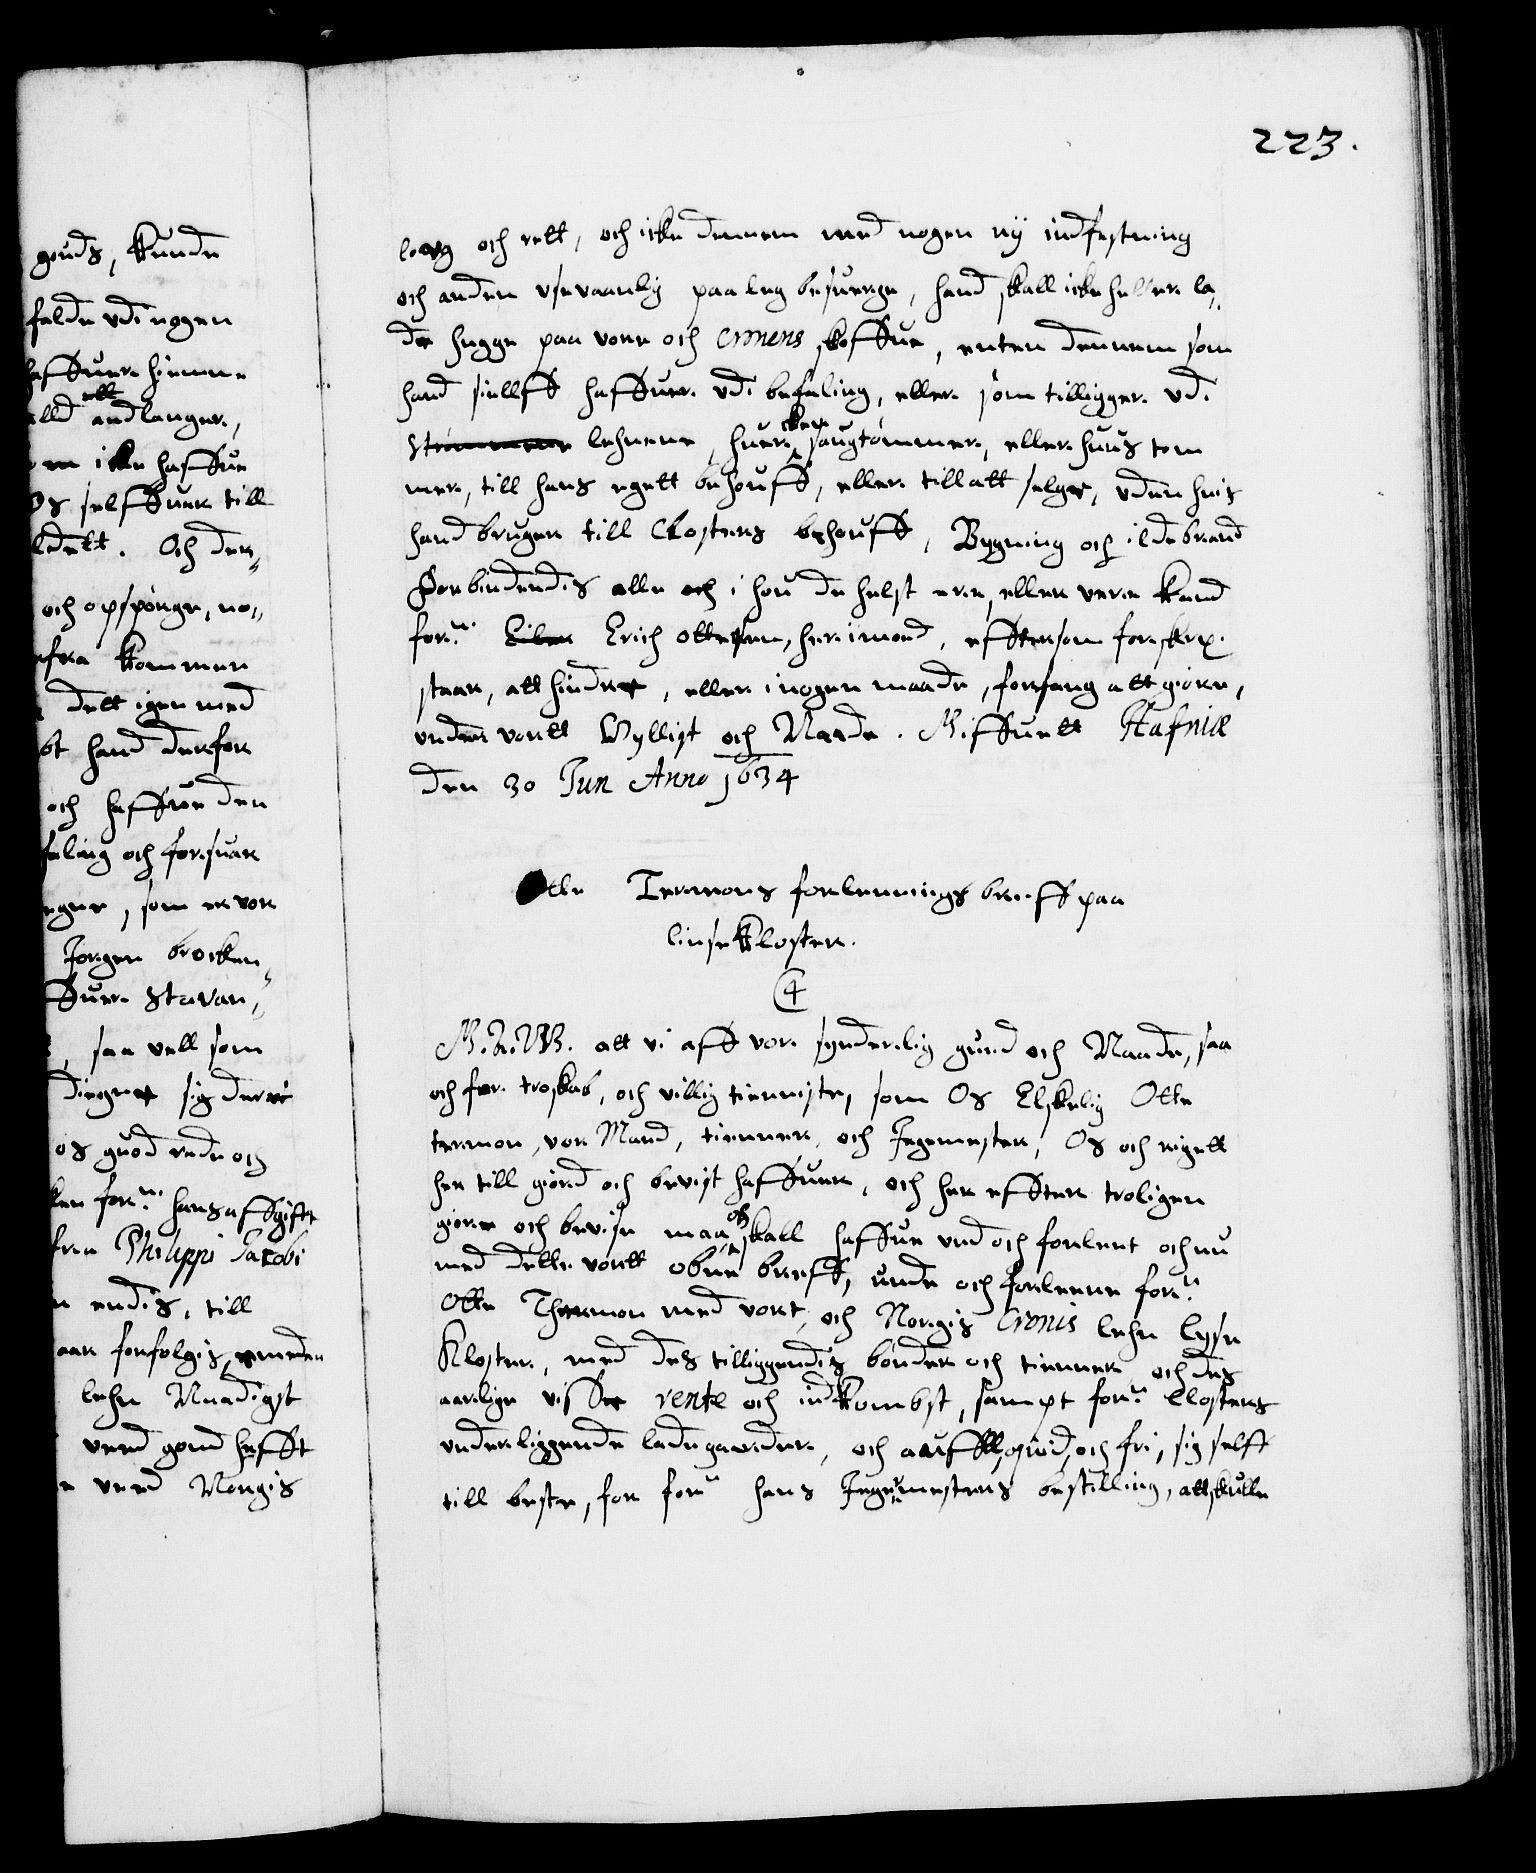 223.
goeds, kunde
falde udi nogen
haffuer hiemme
ell
alld andlanger,
em icke haffue
Os selffuer till
ldelt. Och der„
och opspörge, no„
efra kommer
dett igen med
bt hand derfor
och haffue den
faling och forsuar
egne, som er vor
Jorgen brocken„
ffuer Stavan„
, saa vell som
diegnet sig der vi
os guod rede och
ker forne: hans affgifft
fra Philippi Jacobi
n endis, till
aar forfolgis, emeden
lehn Naadigst
verd gond hafft
e verd Norgis
lovg och rett, och icke dennem med nogen ny indfestning
och anden usevaanlig paaleg besuerge, hand skall icke heller la„
de hugge paa vore och cronens skoffue, enten dennem som
hand siellff haffuer udi befaling, eller som tilligger udi
cken
lehnene, huer saugtömmer, eller huus töm
mer, till hans egett behouff, eller till att selge, uden huis
hand bruger till Closters behouff, Bygning och ildebrand
Forbindendis alle och i huo de helst ere, eller vere kand
forne: Erich ottesen, her imod, effterson forskrev.
staar, att hindre, eller i nogen maade, forfang att giöre,
under vortt Hylligt och Naade. Giffuett Hafniæ
den 30 Jun Anno 1634
Otte Termons forlennings breff paa
liuse Kloster.
4
G.A.W. att vi aff vor synderlig gunst och Naade, saa
och for troskab, och villig tienniste, som Os Elskelig Otte
termon, vor Mand, tienner, och Jegemester, Os och rigett
her till giord och bevist haffuer, och her effter troligen
och
giöre och bevise maa skall haffue und och forlent och nu
med dette vortt obne breff, unde och forlenne forne:
Otte Thermon med vort, och Norgis Cronis lehn Lyse
Kloster, med des tilliggendis bönder och tienner och des
aarlige visse rente och indkombst, sampt forne: Closters
underliggende ladegaarder, och aauffll, quid, och fri, sig selff
till beste, for forne hans Jegermesters bestilling, att skulle